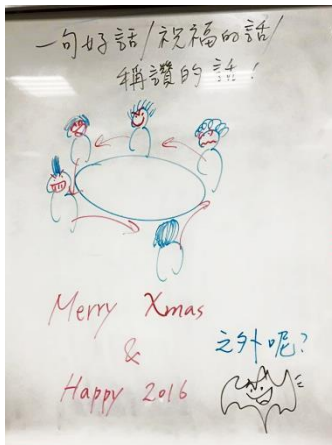 一句好話/祝福的話/
稱讚的話!
Merry Xmas
&
Happy 2016
之外呢?